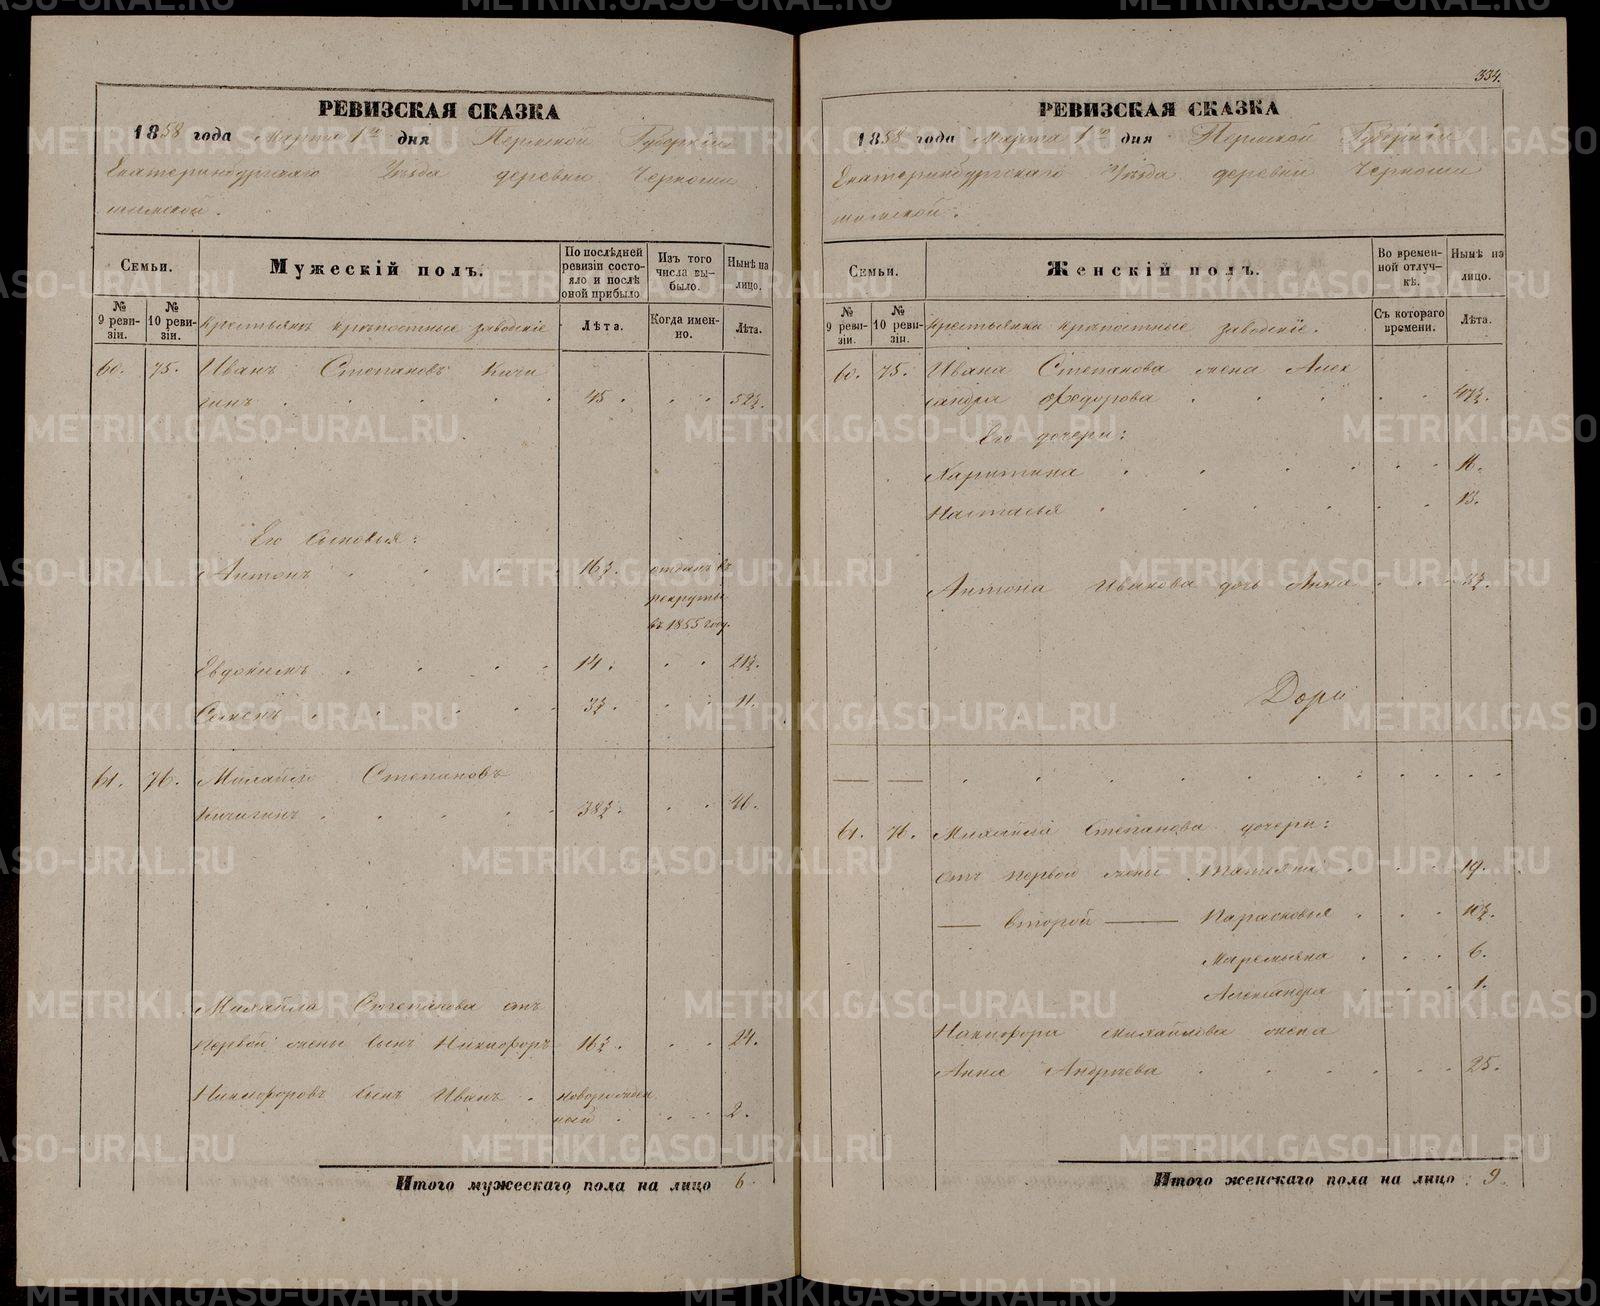 334.
РЕВИЗСКАЯ СКАЗКА
1858 года Марта 1го дня Пермской Губернiи
Екатеринбургскаго Уѣзда деревни Черноши
шимской.
Семьи.
Мужескiй полъ.
По послѣдней ревизiи состояло и послѣ оной прибыло
Изъ того числа выбыло.
Нынѣ на лицо.
№ 9 ревизiи.
№ 10 ревизiи.
Крестьянъ крѣпостные заводскiе
Лѣта.
Когда именно.
Лѣта.
60. 75. Иванъ Степановъ Кичи
гинъ 45. 52½.
Его сыновья:
Антонъ 16½. отданъ въ
рекруты
въ 1855 году.
Евдокимъ 14. 21½.
Семенъ 3½. 11.
61. 76. Михайло Степановъ
Кичигинъ 38½. 46.
Михайла Степанова отъ
первой жены сынъ Никифоръ 16½. 24.
Никифоровъ сынъ Иванъ новорожден
ный 2.
Итого мужескаго пола на лицо 6.
РЕВИЗСКАЯ СКАЗКА
1858 года Марта 1го дня Пермской Губернiи
Екатеринбургскаго Уѣзда деревни Черноши
шимской.
Семьи.
Женскiй полъ.
Во временной отлучкѣ.
Нынѣ на лицо.
№ 9 ревизiи.
№ 10 ревизiи.
Крестьянки крѣпостные заводскiе.
Съ котораго времени.
Лѣта.
60. 75. Ивана Степанова жена Алек
сандра Ѳедорова 47½.
Его дочери:
Харитина 16.
Настасья 13.
Антона Иванова дочь Анна 3½.
61. 76. Михайла Степанова дочери:
отъ первой жены Татьяна 19.
— второй — Парасковья 10½.
Маремьяна 6.
Александра 1.
Никифора Михайлова жена
Анна Андрѣева 25.
Итого женскаго пола на лицо 9.
METRIKI.GASO-URAL.RU